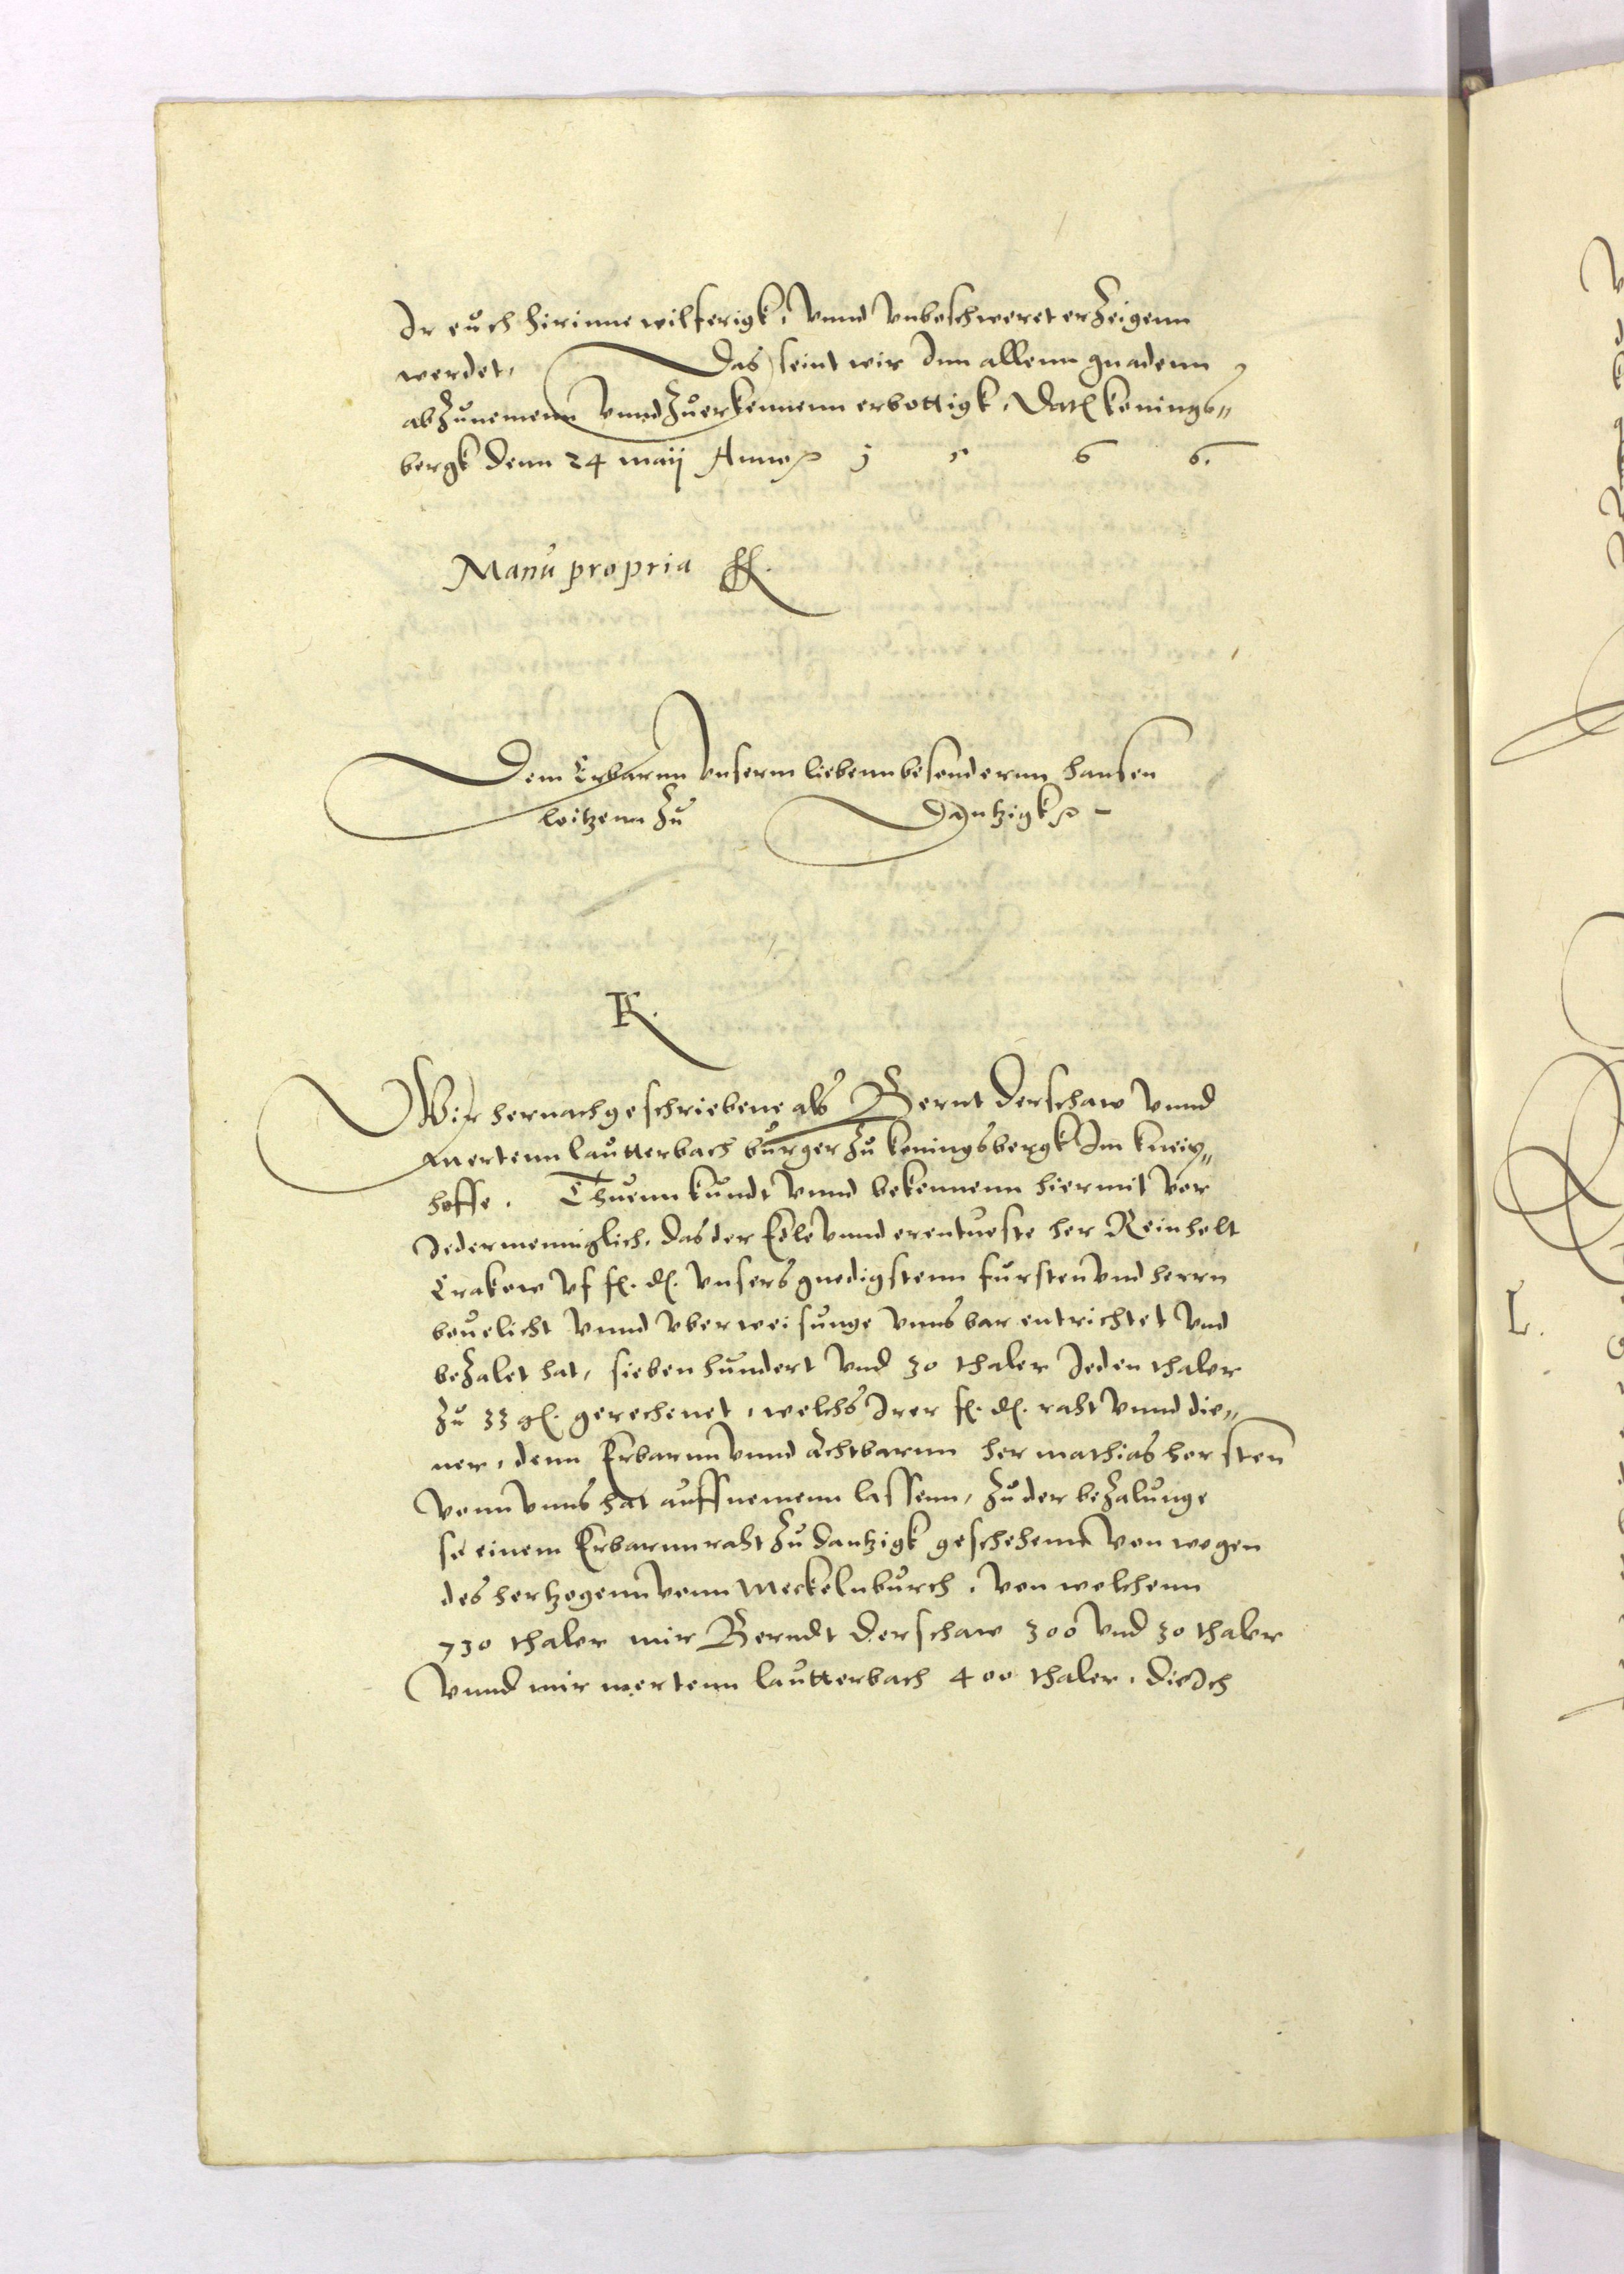 Ir euch hirinne wilferigk, vnnd vnbeschweret erzeigenn
werdet, Das seint wir Inn allenn gnadenn
abzunemenn vnnd zuerkennenn erbottigk, Dat konings„
bergk denn 24 maij Anno 1 5 6 6.
Manu propria
Dem Erbarnn vnserm liebenn besondernn hansen
loitzenn zu Dantzigk
K.
Wir hernachgeschriebene als Bernt Derschaw vnnd
Mertenn lautterbach burger zu koningsbergk Im kneip„
hoffe. Thuenn kundt vnnd bekennenn hiermit vor
Jedermenniglich, das der Edle vnnd erentueste her Reinholt
Crakow vf f. d. vnsers gnedigstenn fursten vnd herrn
beuelicht vnnd vberweisunge vnns bar entrichtet vnd
bezalet hat, siebenhundert vnd 30 thaler Jeden thaler
zu 33 g. gerechenet, welchs Irer f. d. raht vnnd die„
ner, denn Erbarnn vnnd Achtbarnn her mathias horsten
vonn vnns hat auffnemenn lassenn, zu der bezalunge
so einem Erbarnn raht zu dantzigk geschehenn von wegen
des hertzogenn vonn Meckelnburch, von welchenn
730 thaler mir Berndt Derschaw 300 vnd 30 thaler
vnnd mir mertenn lautterbach 400 thaler, die Ich
L.